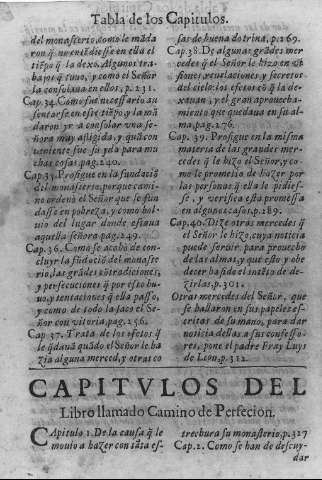 Tabla de los Capitulos.
del monasterio, como le mãda
ron q̃ no entẽdiesse en ella el
tiẽpo q̃ la dexo. Algunos tra-
bajos q̃ tuuo, y como el Señor
la consolaua en ellos, p. 231.
Cap. 34. Como fue necessario au
sentarse en este tiẽpo, y la mã
daron yr a consolar vna se-
ñora muy afligida, y quã con
ueniente fue su yda para mu
chas cosas, pag. 240.
Cap. 35. Prosigue en la fundaciõ
del monasterio, porque cami-
no ordenò el Señor que se fun
dasse en pobreza, y como bol-
uio del lugar donde estaua
aquella señora pag. 249.
Cap. 36. Como se acabò de con-
cluyr la fũdaciõ del monaste
rio, las grãdes cõtradiciones,
y persecuciones q̃ por esto hu-
uo, y tentaciones q̃ ella passo,
y como de todo la saco el Se-
ñor con vitoria, pag. 256.
Cap. 37. Trata de los efetos q̃
le q̃dauã quãdo el Señor le ha
zia alguna merced, y otras co
sas de buena dotrina, p. 269.
Cap. 38. De algunas grãdes mer
cedes q̃ el Señor le hizo en vi
siones, reuelaciones, y secretos
del cielo: los efetos cõ q̃ la de-
xauan, y el gran aprouecha-
miento que quedaua en su al-
ma, pag. 276.
Cap. 39. Prosigue en la misma
materia de las grandes mer
cedes q̃ le hizo el Señor, y co-
mo le prometio de hazer por
las personas q̃ ella le pidies-
se, y verifica esta promessa
en algunos casos, p. 289.
Cap. 40. Dize otras mercedes q̃
el Señor le hizo, cuya noticia
puede seruir para prouecho
de las almas, y que esto y obe
decer ha sido el intẽto de de-
zirlas, p. 301.
Otras mercedes del Señor, que
se hallaron en sus papeles es-
critas de su mano, para dar
noticia dellas a sus confesso-
res, pone el padre Fray Luys
de Leon, p. 312.
CAPITVLOS DEL
Libro llamado Camino de Perfecion.
Capitulo 1. De la causa q̃ le
mouio a hazer con tãta es-
trechura su monasterio, p. 327
Cap. 2. Como se han de descuy-
dar